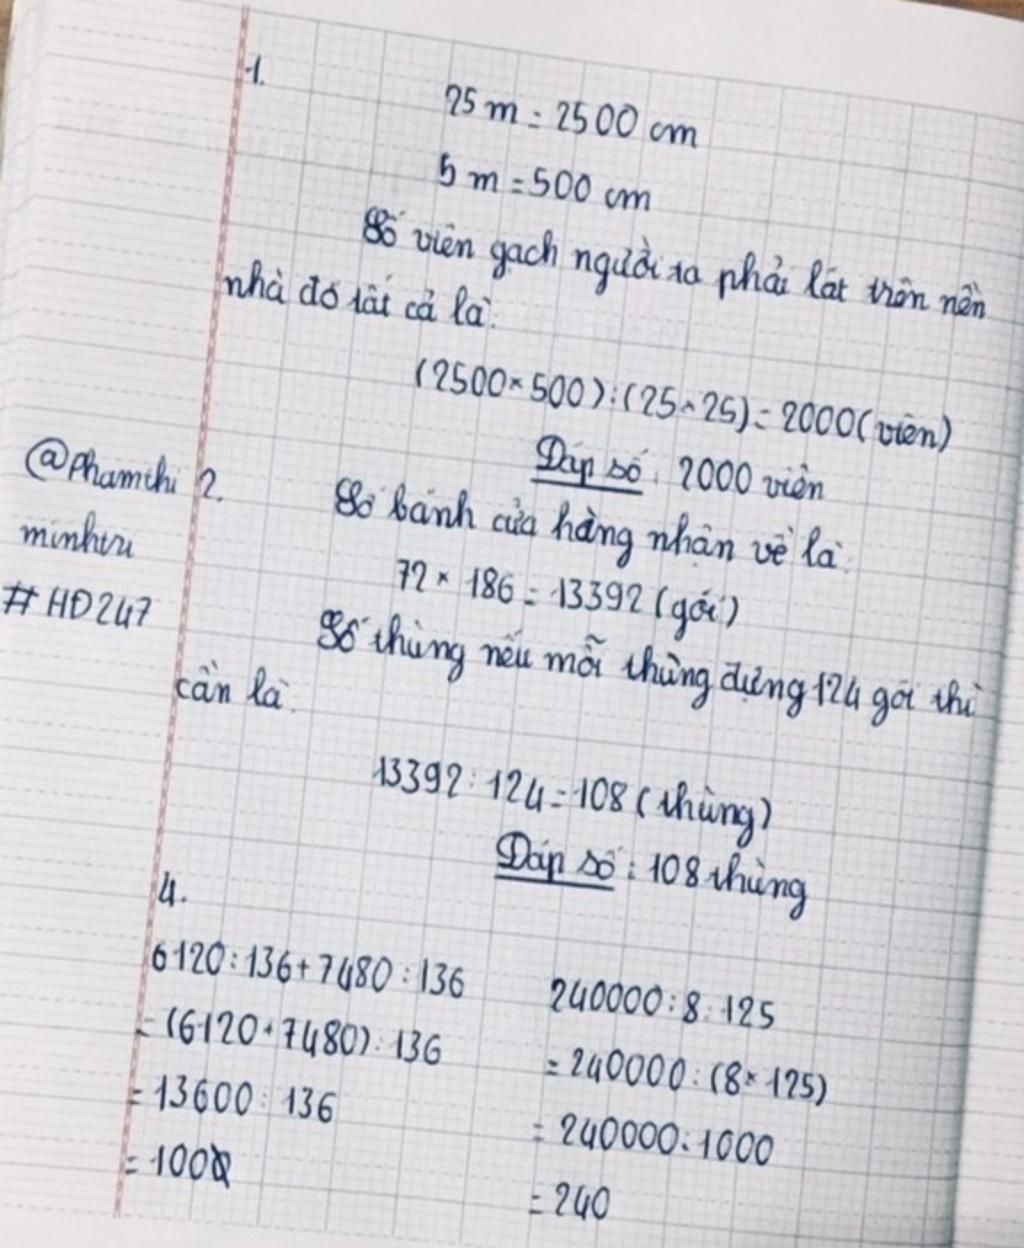 1.
25 m = 2500 cm
5 m = 500 cm
Số viên gạch người ta phải lát trên nền
nhà đó tất cả là:
(2500 × 500) : (25 × 25) = 2000 (viên)
Đáp số: 2000 viên
@phamthi
minhtru
#HĐ247
2.
Số bánh cửa hàng nhận về là:
72 × 186 = 13392 (gói)
Số thùng nếu mỗi thùng đựng 124 gói thì
cần là:
13392 : 124 = 108 (thùng)
Đáp số: 108 thùng
4.
6120 : 136 + 7480 : 136
= (6120 + 7480) : 136
= 13600 : 136
= 100
240000 : 8 : 125
= 240000 : (8 × 125)
= 240000 : 1000
= 240